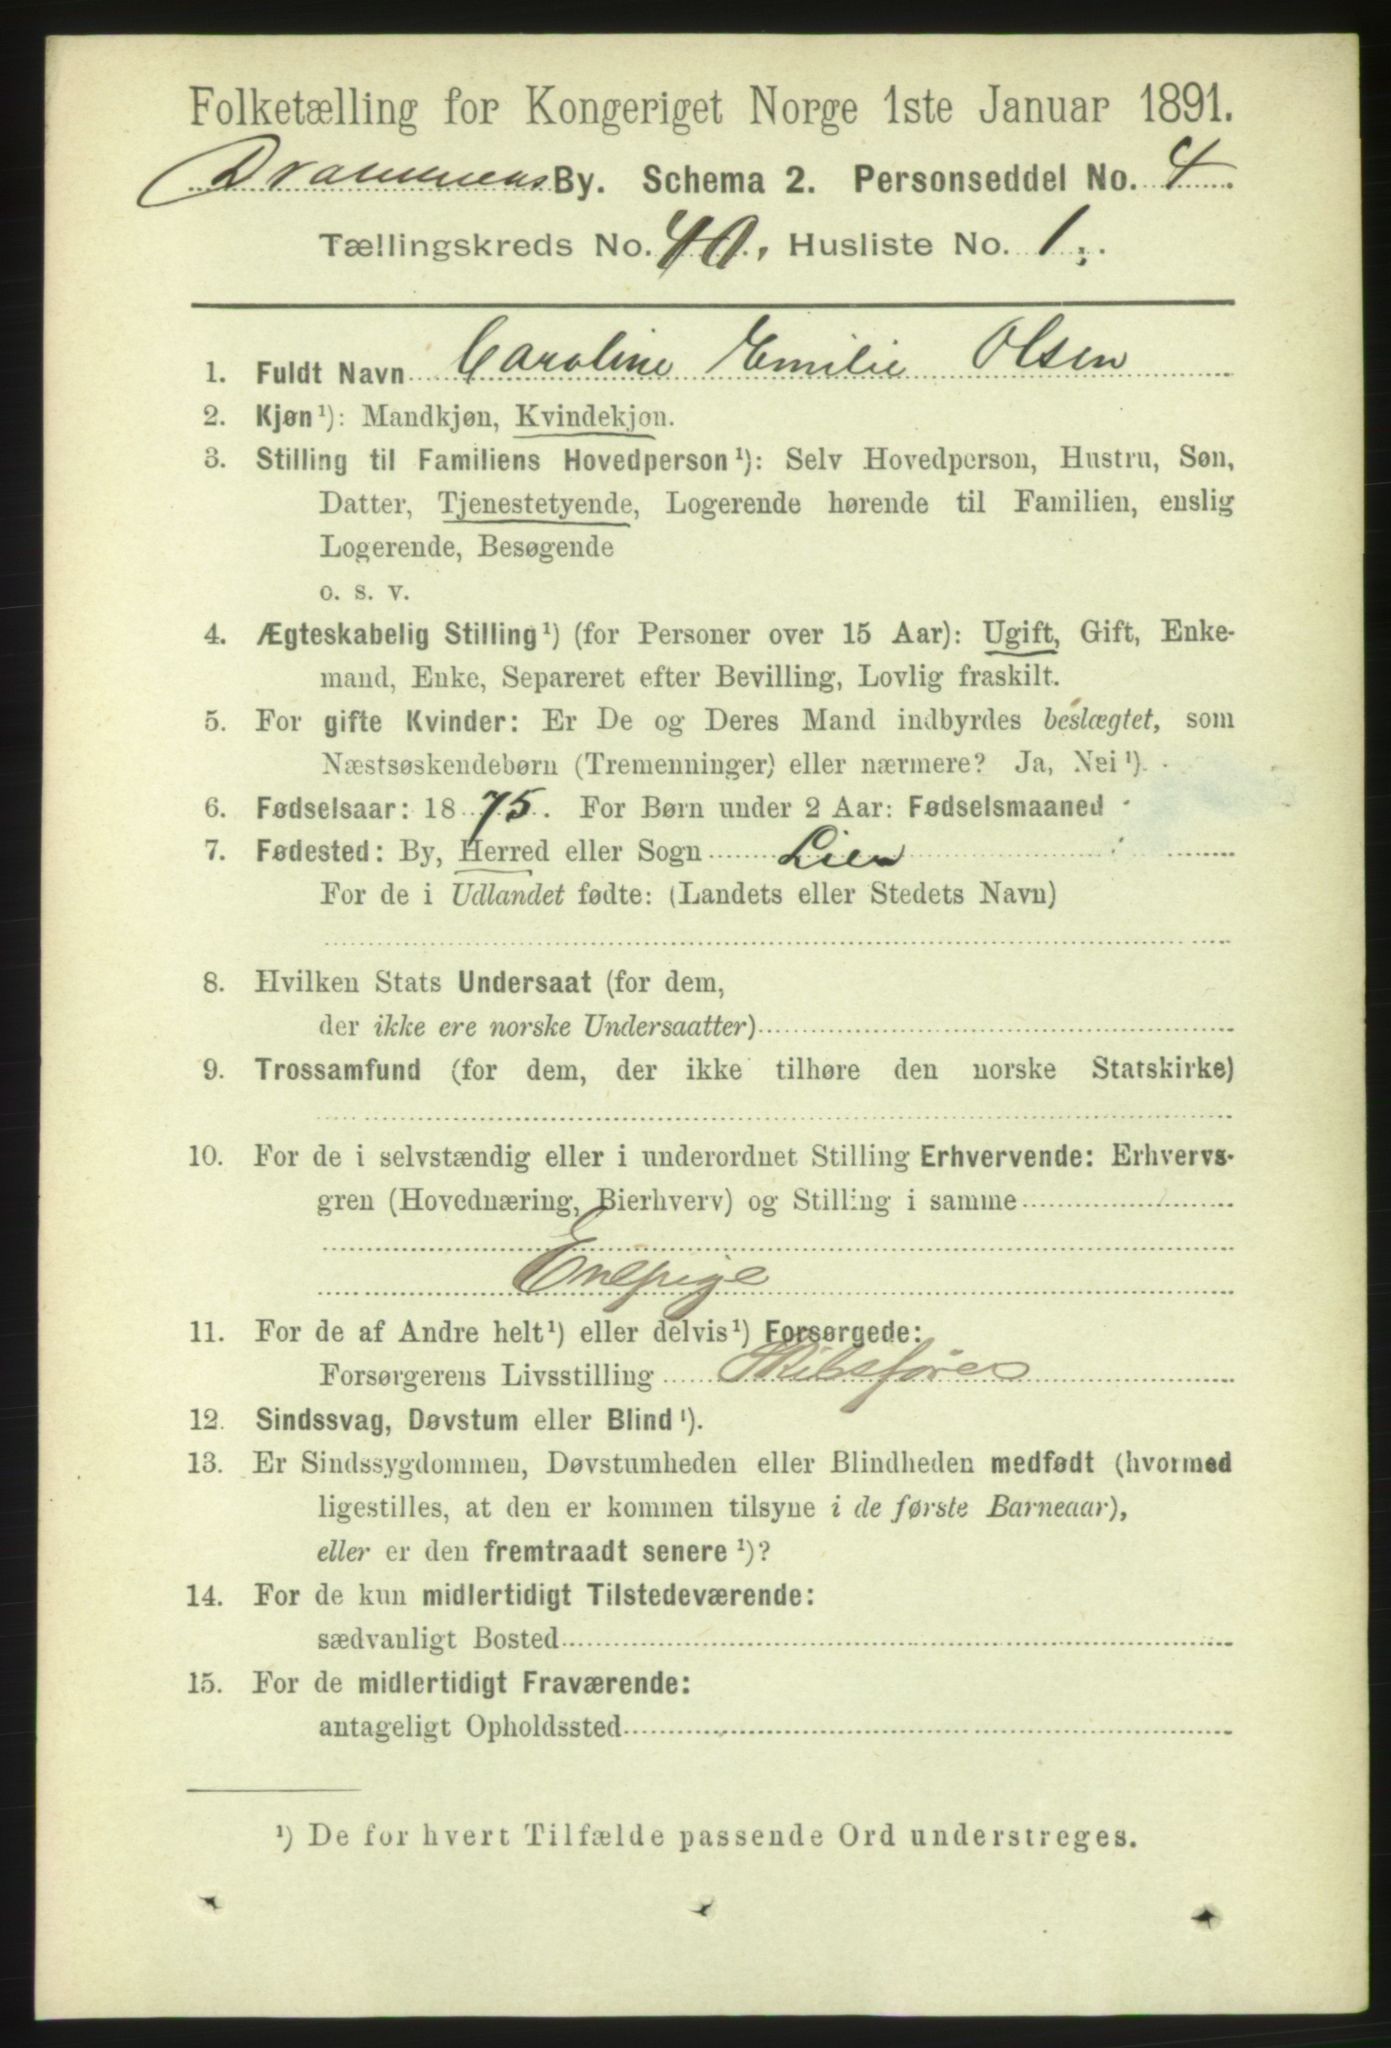 Folketælling for Kongeriget Norge 1ste Januar 1891.
Drammens By. Schema 2. Personseddel No. 4
Tællingskreds No. 40, Husliste No. 1.
1. Fuldt Navn Caroline Emilie Olsen
2. Kjøn¹): Mandkjøn, Kvindekjøn.
3. Stilling til Familiens Hovedperson¹): Selv Hovedperson, Hustru, Søn,
Datter, Tjenestetyende, Logerende hørende til Familien, enslig
Logerende, Besøgende
o. s. v.
4. Ægteskabelig Stilling¹) (for Personer over 15 Aar): Ugift, Gift, Enke-
mand, Enke, Separeret efter Bevilling, Lovlig fraskilt.
5. For gifte Kvinder: Er De og Deres Mand indbyrdes beslægtet, som
Næstsøskendebørn (Tremenninger) eller nærmere? Ja, Nei¹).
6. Fødselsaar: 1875. For Børn under 2 Aar: Fødselsmaaned
7. Fødested: By, Herred eller Sogn Lier
For de i Udlandet fødte: (Landets eller Stedets Navn)
8. Hvilken Stats Undersaat (for dem,
der ikke ere norske Undersaatter)
9. Trossamfund (for dem, der ikke tilhøre den norske Statskirke)
10. For de i selvstændig eller i underordnet Stilling Erhvervende: Erhvervs-
gren (Hovednæring, Bierhverv) og Stilling i samme
Enepige
11. For de af Andre helt¹) eller delvis¹) Forsørgede:
Forsørgerens Livsstilling Skibsfører
12. Sindssvag, Døvstum eller Blind¹).
13. Er Sindssygdommen, Døvstumheden eller Blindheden medfødt (hvormed
ligestilles, at den er kommen tilsyne i de første Barneaar),
eller er den fremtraadt senere¹)?
14. For de kun midlertidigt Tilstedeværende:
sædvanligt Bosted
15. For de midlertidigt Fraværende:
antageligt Opholdssted
¹) De for hvert Tilfælde passende Ord understreges.